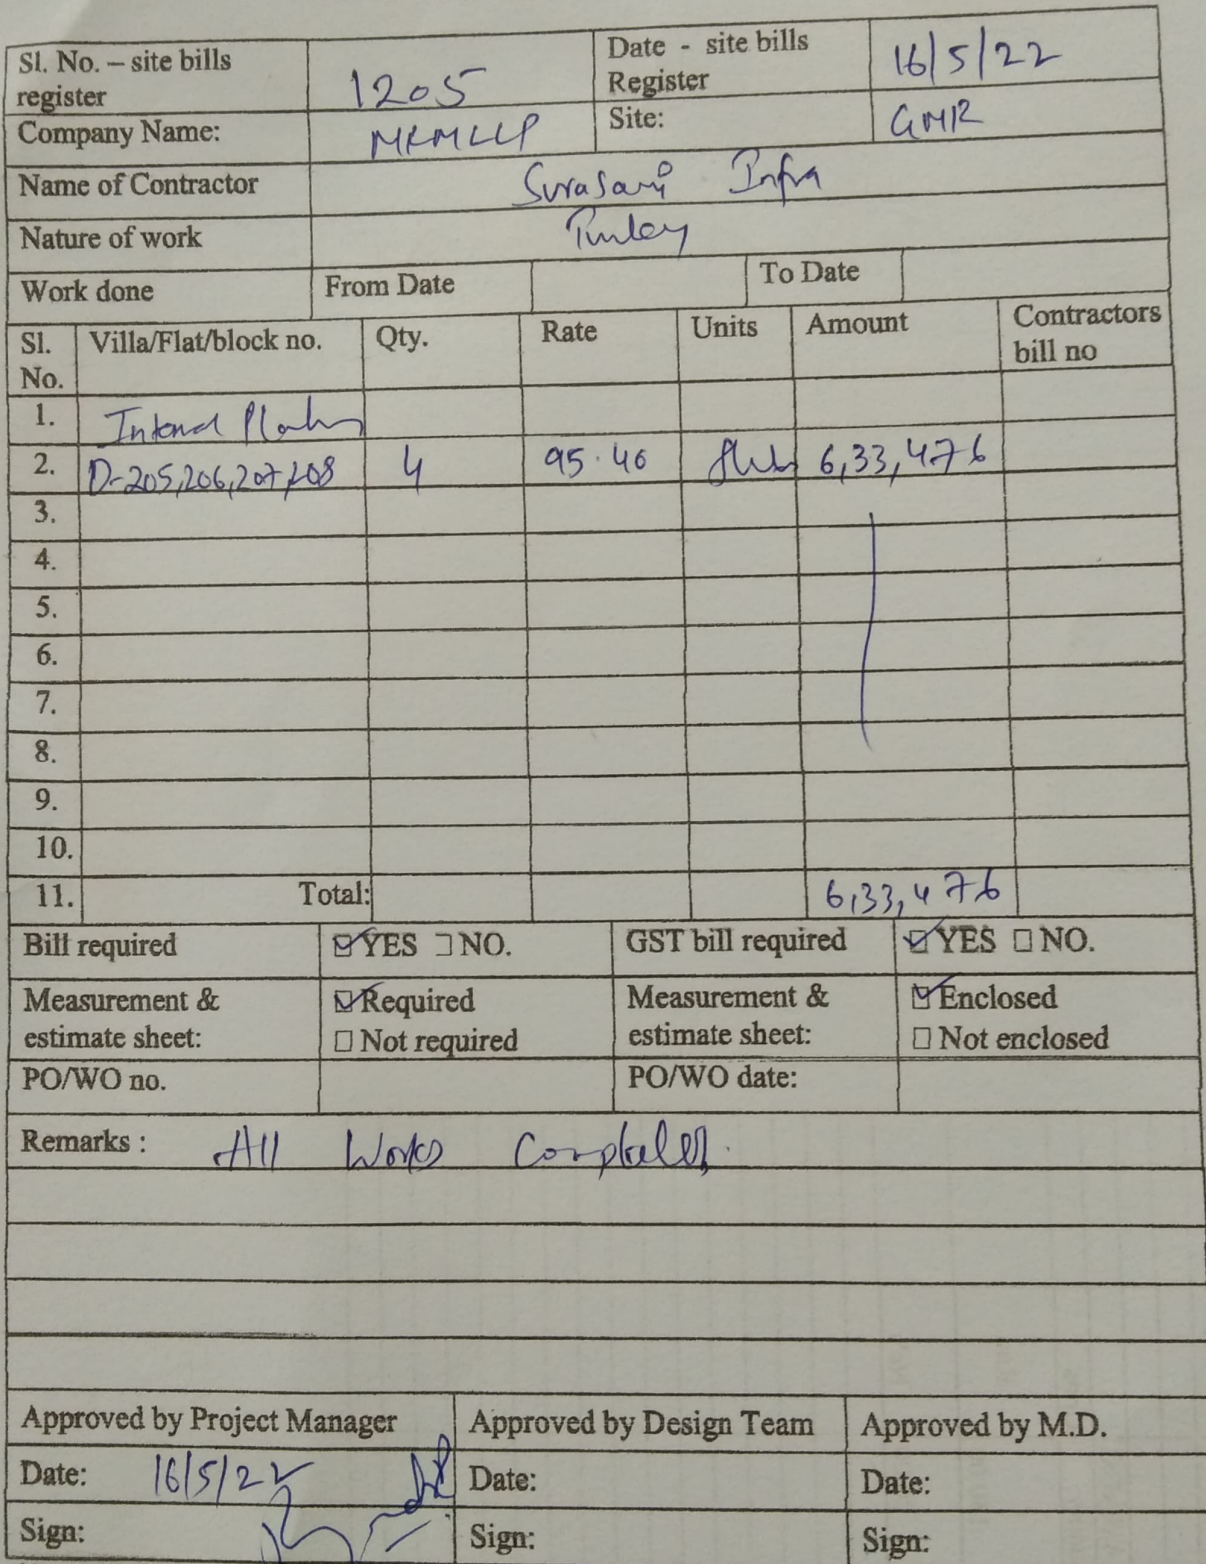 Sl. No. – site bills register 1205 Date - site bills Register 16/5/22
Company Name: MKMLLP Site: GMR
Name of Contractor Surasani Infra
Nature of work
Work done From Date To Date
Sl. No. Villa/Flat/block no. Qty. Rate Units Amount Contractors bill no
1. Internal
2. D-205,206,207,208 4 95.40 6,33,476
3.
4.
5.
6.
7.
8.
9.
10.
11. Total: 6,33,476
Bill required ☑YES ☐NO. GST bill required ☑YES ☐NO.
Measurement & estimate sheet: ☑Required ☐Not required Measurement & estimate sheet: ☑Enclosed ☐Not enclosed
PO/WO no. PO/WO date:
Remarks : All Works Completed.
Approved by Project Manager Approved by Design Team Approved by M.D.
Date: 16/5/22 Date: Date:
Sign: Sign: Sign: